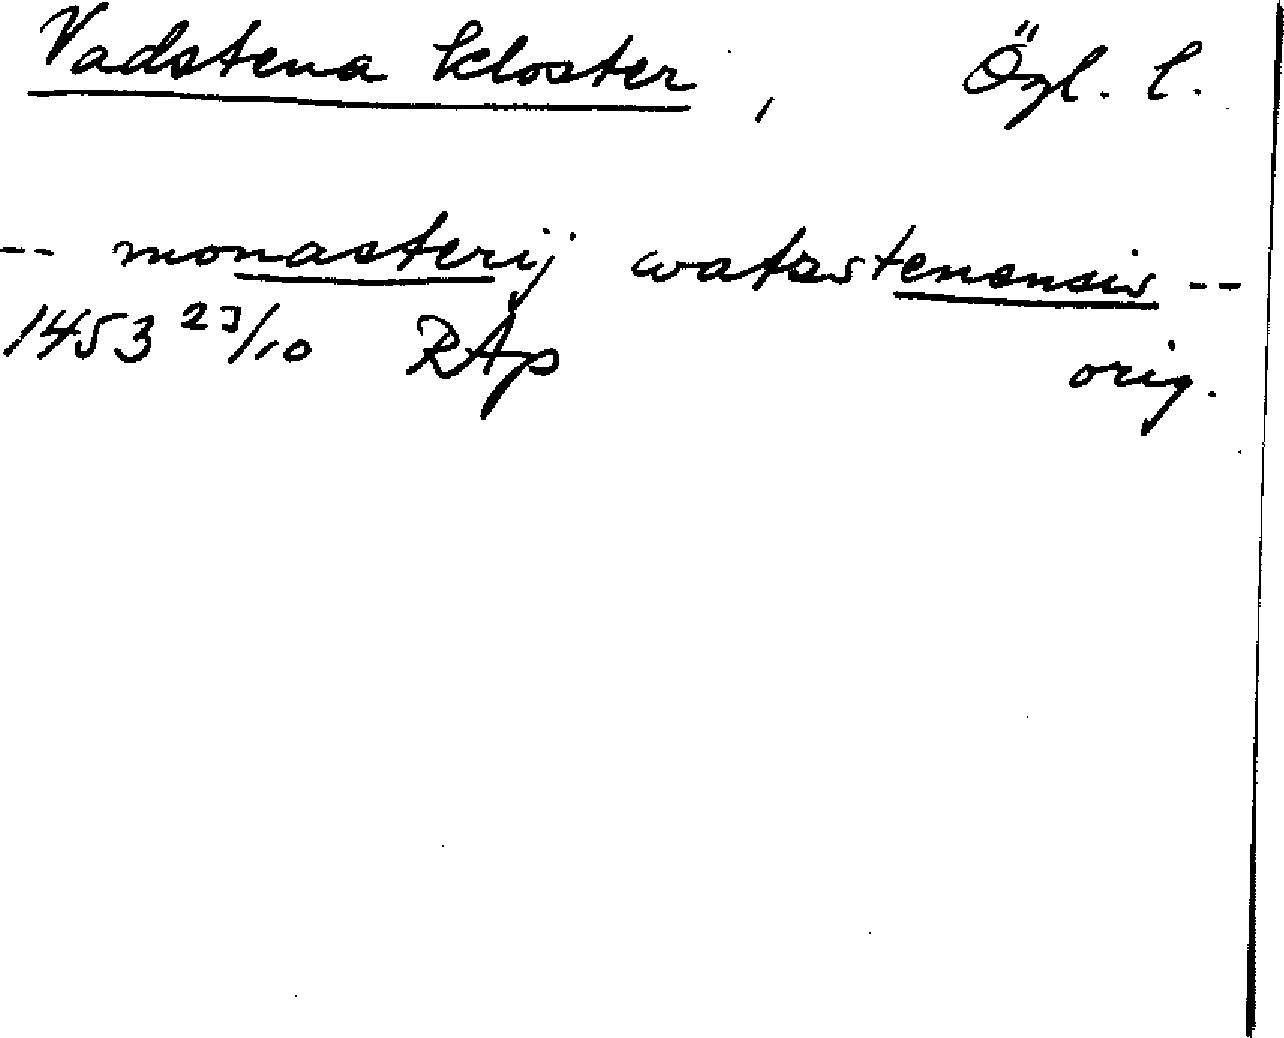 Vadstena kloster, Ögl. l.
-- monasterij watzstenensis --
1453 23/10 RAp orig.